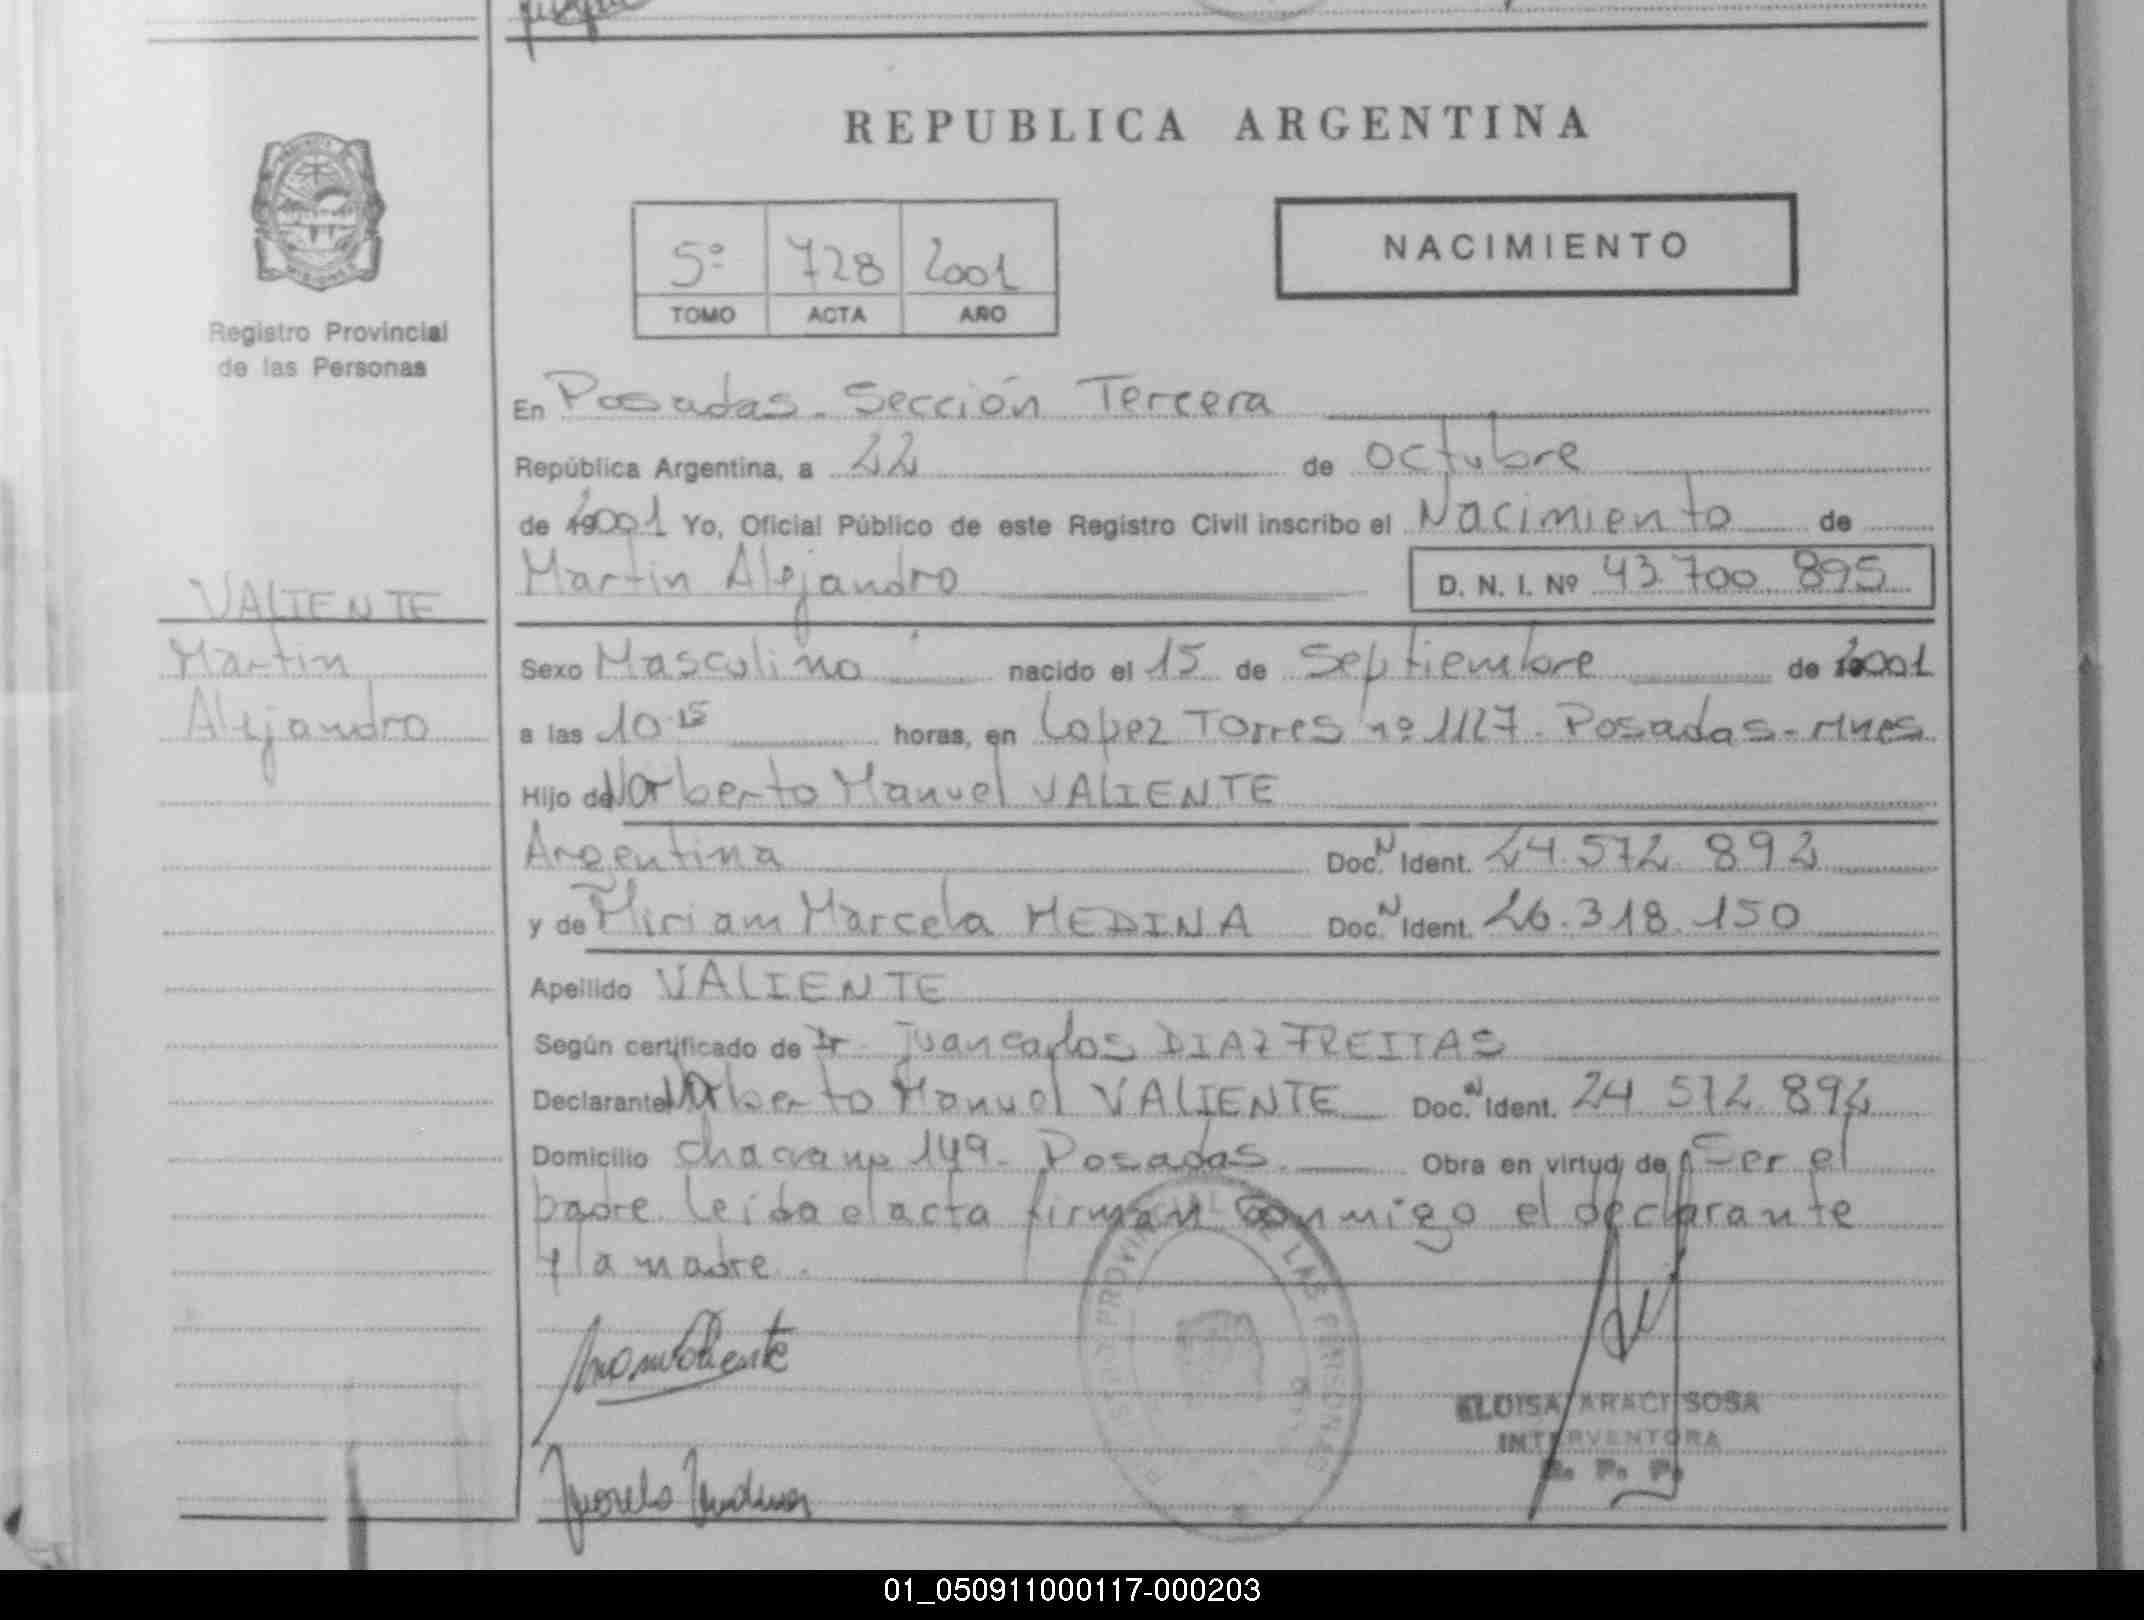 REPUBLICA ARGENTINA
5º 728 2001
TOMO ACTA AÑO
NACIMIENTO
Registro Provincial
de las Personas
En Posadas - Sección Tercera
República Argentina, a 22 de octubre
de 2001 Yo, Oficial Público de este Registro Civil inscribo el Nacimiento de
Martin Alejandro D. N. I. Nº 43.700.895
VALIENTE
Martin
Alejandro
Sexo Masculino nacido el 15 de Septiembre de 2001
a las 10.15 horas, en Lopez Torres nº 1127 - Posadas - Mnes
Hijo de Norberto Manuel VALIENTE
Argentina Doc.N Ident. 24.572.892
y de Miriam Marcela MEDINA Doc.N Ident. 26.318.150
Apellido VALIENTE
Según certificado de Dr Juan Carlos DIAZ FREITAS
Declarante Norberto Manuel VALIENTE Doc.N Ident. 24 572 892
Domicilio 149 - Posadas. Obra en virtud de Ser el
padre. Leída el acta firman conmigo el declarante
y la madre.
PROVINCIAL DE LAS PERSONAS
ELOISA ARACI SOSA
INTERVENTORA
R. P. P.
01_050911000117-000203